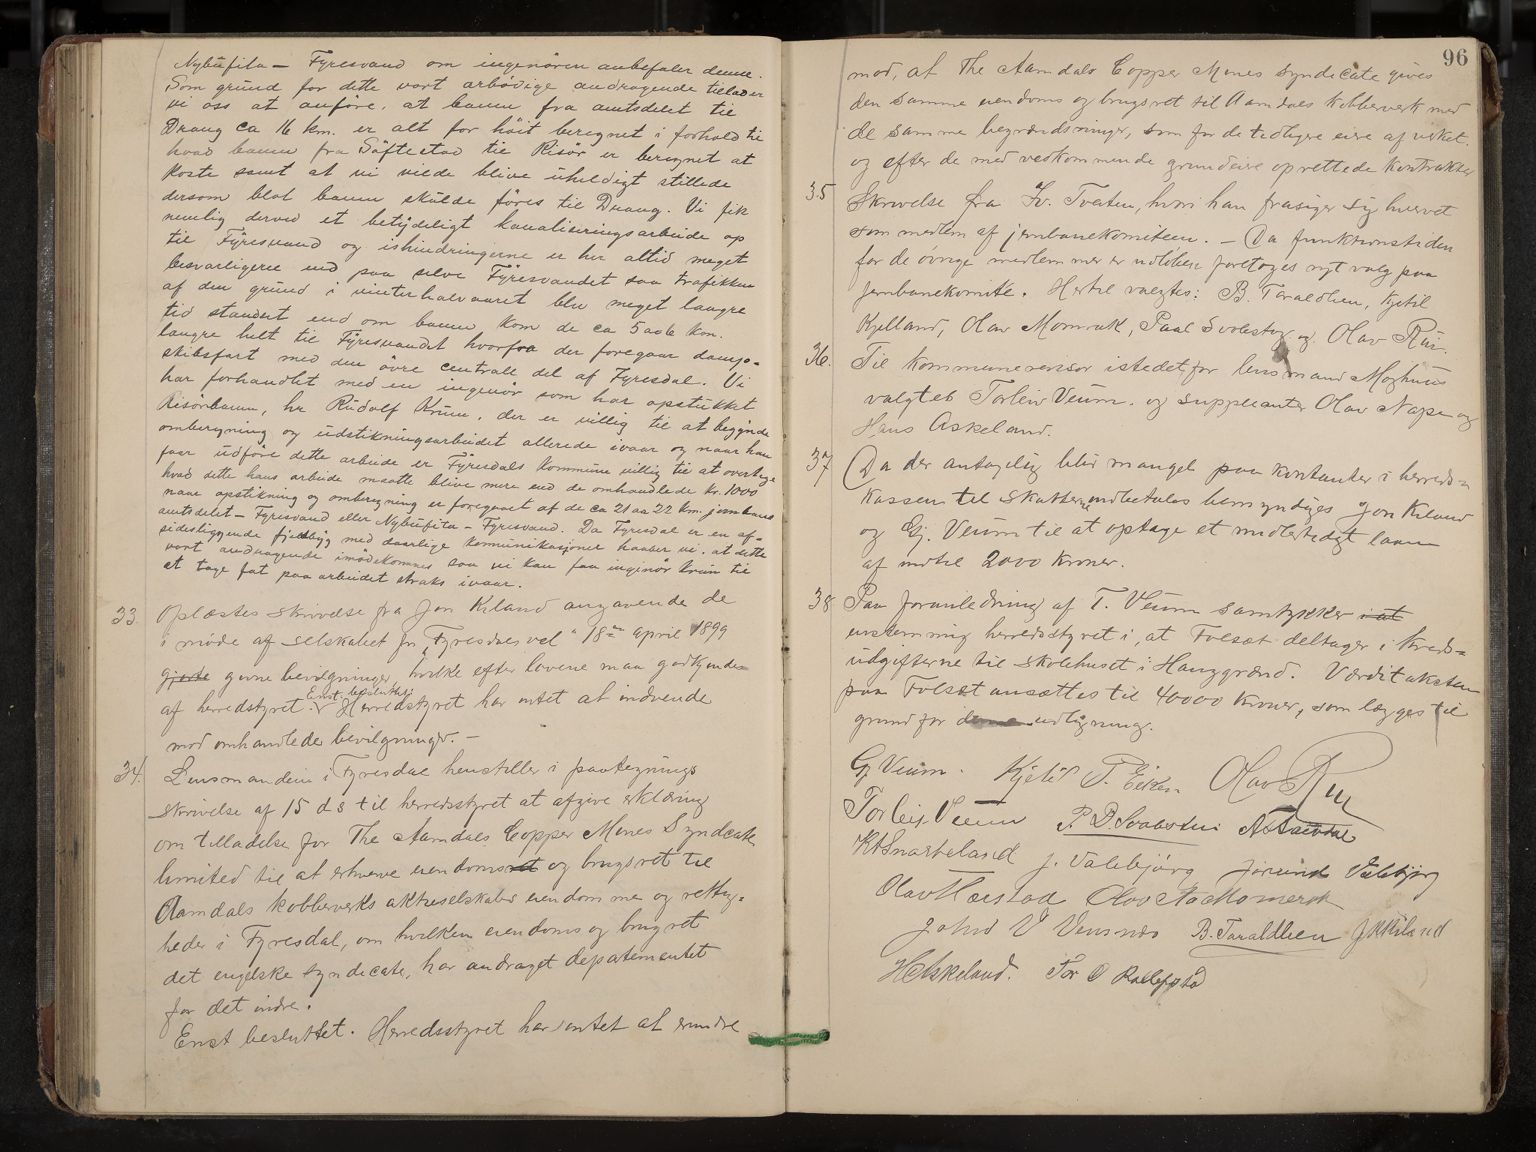 Nybufita — Fyresvand om ingeniören anbefaler denne.
Som grund for dette vort arbödige andragende tillader
vi oss at anföre, at banen fra amtsdelet til
Draug ca 16 km. er alt for höit beregnet i forhold til
hvad banen fra Söftestad til Risör er beregnet at
koste samt at vi vilde blive uheldigt stillede
dersom blot banen skulde föres til Draug. Vi fik
nemlig derved et betydeligt kanaliseringsarbeide op
til Fyresvand og ishindringerne er her altid meget
besværligere end paa selve Fyresvandet saa trafikken
af den grund i vinterhalvaaret blev meget længre
tid standset end om banen kom de ca 5 a 6 km.
længre helt til Fyresvandet hvorfra der foregaar damp-
skibsfart med den övre centrale del af Fyresdal. Vi
har forhandlet med en ingeniör som har opstukket
Risörbanen, hr Rudolf Krün, der er villig til at begynde
omberegning og udstikningsarbeidet allerede ivaar og naar han
faar udföre dette arbeide er Fyresdals kommune villig til at overtage
hvad dette hans arbeide maatte blive mere end de omhandlede kr. 1000
naar opstikning og omberegning er foregaaet af de ca 21 a 22 km. jernbane
amtsdelet — Fyresvand eller Nybufita — Fyresvand. Da Fyresdal er en af-
sidesliggende fjeldbyg med daarlige komunikasjoner haaber vi, at dette
vort andragende imödekommes saa vi kan faa ingeniör Krün til
at tage fat paa arbeidet straks ivaar.
33. Oplæstes skrivelse fra Jon Kiland angaaende de
i möde af selskabet for "Fyresdals vel" 18de April 1899
gjorte givne bevilgninger hvilke efter lovene maa godkjendes
af herredstyret. Enst. besluttet: Herredstyret har intet at indvende
mod omhandlede bevilgninger. —
34. Lensmanden i Fyresdal henstiller i paategnings
skrivelse af 15 ds til herredsstyret at afgive erklæring
om tilladelse for The Aamdals Copper Mines Syndicate
limited til at erhverve eiendomsret og brugsret til
Aamdals kobberverks aktieselskabs eiendomme og rettig-
heder i Fyresdal, om hvilken eiendoms og brugsret
det engelske syndicate, har andraget departementet
for det indre.
Enst besluttet. Herredsstyret har intet at erindre
96
mod, at The Aamdals Copper Mines syndicate gives
den samme eiendoms og brugsret til Aamdals kobberverk med
de samme begrændsninger, som for de tidligere eiere af verket.
og efter de med vedkommende grundeiere oprettede kontrakter
35 Skrivelse fra Tv. Tvaten, hvori han frasiger sig hvervet
som medlem af jernbanekomiteen. — Da funktionstiden
for de övrige medlemmer er udlöben foretages nyt valg paa
jernbanekomite. Hertil valgtes: B. Taraldlien, Kjetil
Kjelland, Olav Momrak, Paal Svalestog og Olav Rui.
36. Til kommunerevisor istedetfor lensmand Moghus
valgtes Torleiv Veum. og suppleanter Olav Nape og
Hans Askeland.
37 Da der antagelig blir mangel paa kontanter i herreds-
kassen til skatterne indbetales bemyndiges Jon Kiland
og Gj. Veum til at optage et midlertidigt laan
af indtil 2000 kroner.
38 Paa foranledning af T. Veum samtykker i at
enstemmig herredsstyret i, at Folsæt deltager i kreds-
udgifterne til skolehuset i Hauggrænd. Værditaksten
paa Folsæt ansættes til 40000 kroner, som lægges til
grund for denne udligning.
Gj Veum. Kjetil T. Eiken Olav Rui
Torleiv Veum P. P. Svalestui
K Snarteland J. Valebjörg Jörund Valebjörg
Olav Taarstad Olav Aa Momrak
John V Veusnes B. Taraldlien J. Kiland
H Askeland. Tor O Rollefstad